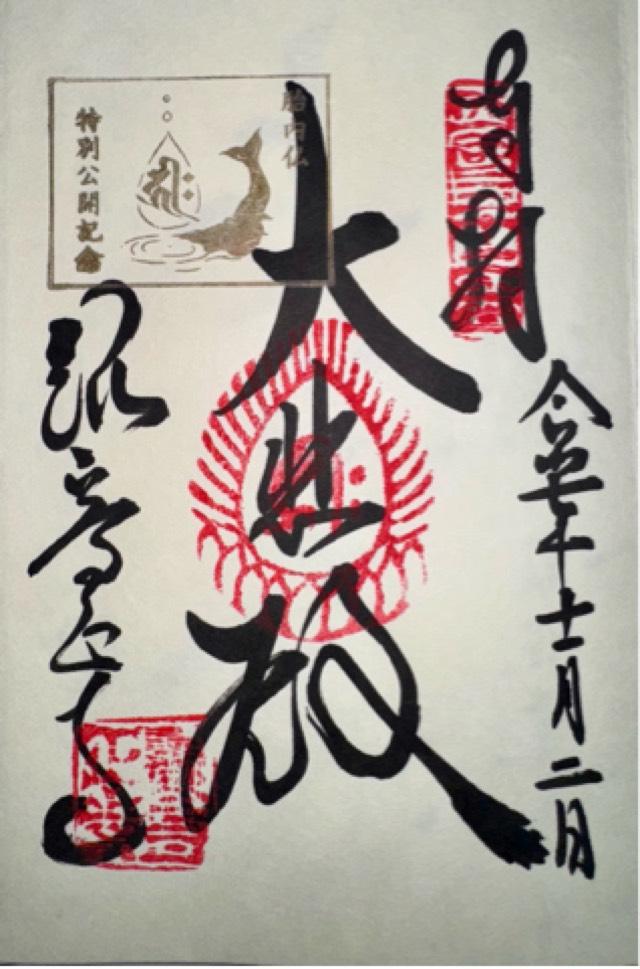 奉拝
令和七年十一月二日
胎内仏
特別公開記念
大悲殿
観音正寺